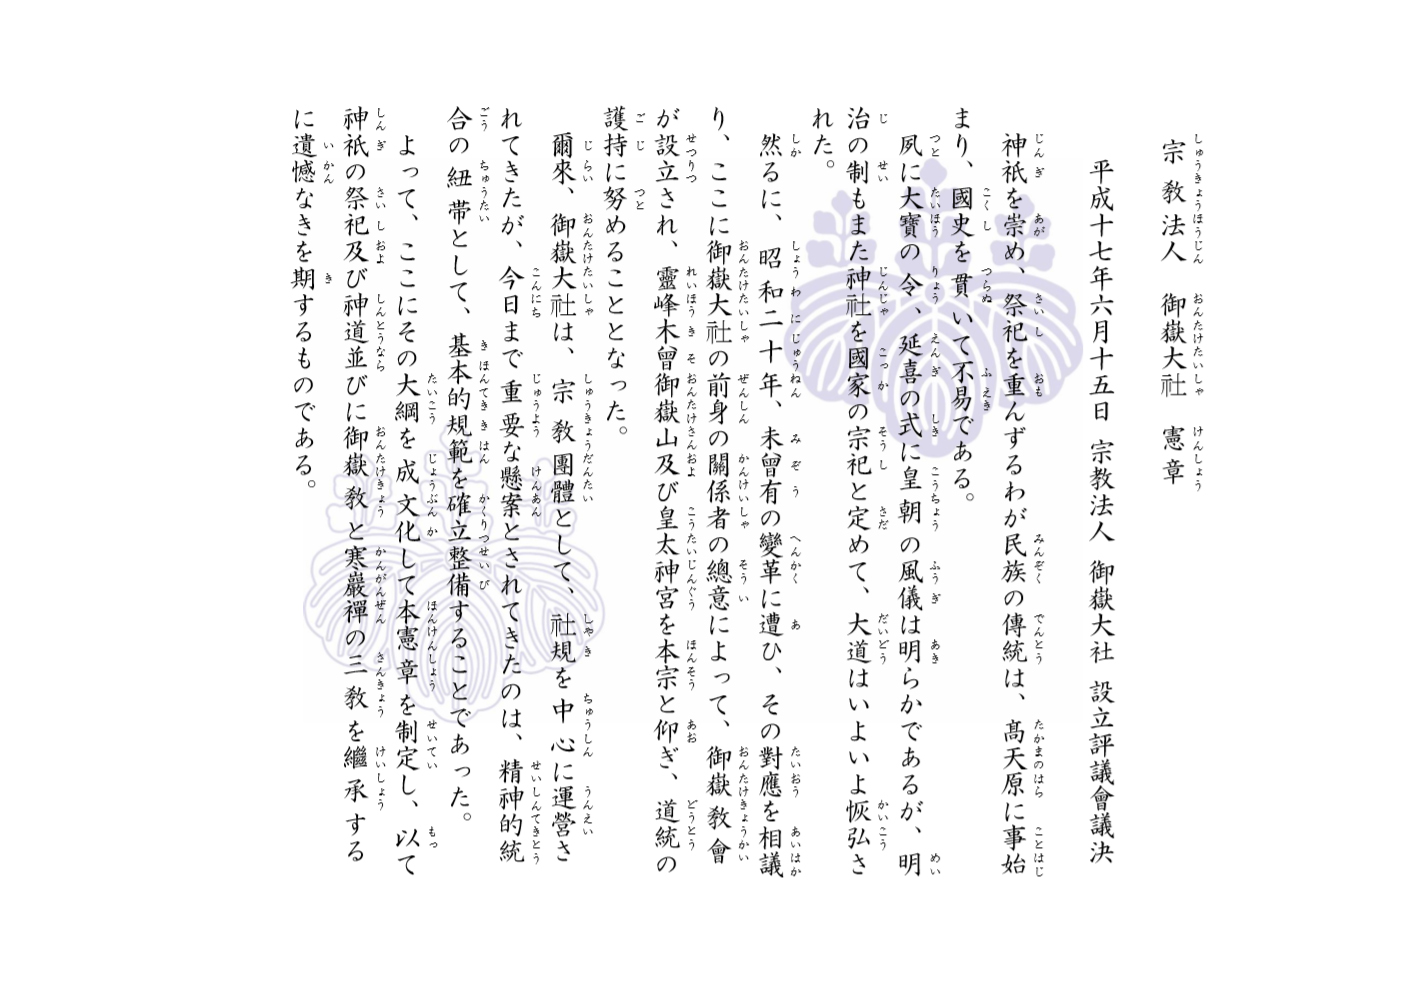 宗教法人　御嶽大社　憲章
平成十七年六月十五日 宗教法人 御嶽大社 設立評議會議決
神祇を崇め、祭祀を重んずるわが民族の傳統は、髙天原に事始
まり、國史を貫いて不易である。
夙に大寶の令、延喜の式に皇朝の風儀は明らかであるが、明
治の制もまた神社を國家の宗祀と定めて、大道はいよいよ恢弘さ
れた。
然るに、昭和二十年、未曾有の變革に遭ひ、その對應を相議
り、ここに御嶽大社の前身の關係者の總意によって、御嶽教會
が設立され、靈峰木曾御嶽山及び皇太神宮を本宗と仰ぎ、道統の
護持に努めることとなった。
爾來、御嶽大社は、宗教團體として、社規を中心に運營さ
れてきたが、今日まで重要な懸案とされてきたのは、精神的統
合の紐帯として、基本的規範を確立整備することであった。
よって、ここにその大綱を成文化して本憲章を制定し、以て
神祇の祭祀及び神道並びに御嶽教と寒巖禪の三教を繼承する
に遺憾なきを期するものである。